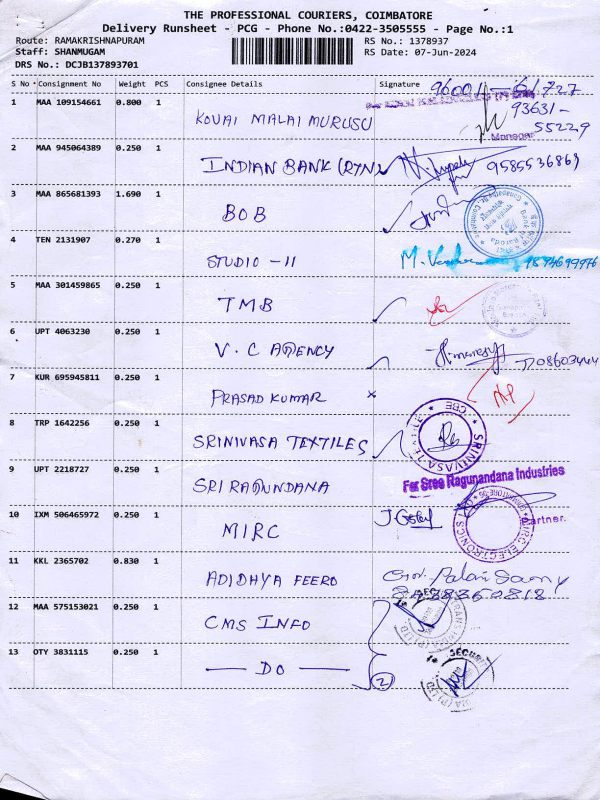 THE PROFESSIONAL COURIERS, COIMBATORE
Delivery Runsheet - PCG - Phone No.:0422-3505555 - Page No.:1
Route: RAMAKRISHNAPURAM RS No.: 1378937
Staff: SHANMUGAM RS Date: 07-Jun-2024
DRS No.: DCJB137893701
S No Consignment No Weight PCS Consignee Details Signature
96001-61727
1 MAA 109154661 0.800 1 KOVAI MALAI MURUSU 93631-
55229
Manager
2 MAA 945064389 0.250 1 INDIAN BANK (RTN) 9585536869
3 MAA 865681393 1.690 1 BOB
4 TEN 2131907 0.270 1 STUDIO -11
5 MAA 301459865 0.250 1 TMB
6 UPT 4063230 0.250 1 V.C AGENCY
7 KUR 695945811 0.250 1 PRASAD KUMAR x
8 TRP 1642256 0.250 1 SRINIVASA TEXTILES
SRINIVASA TEXTILE CBE
9 UPT 2218727 0.250 1 SRI RAGUNDANA
For Sree Ragunandana Industries
Partner.
10 IXM 506465972 0.250 1 MIRC
MIRC ELECTRONICS LTD
11 KKL 2365702 0.830 1 ADIDHAYA FEERO
12 MAA 575153021 0.250 1 CMS INFO
13 OTY 3831115 0.250 1 — DO —
2
SECURI